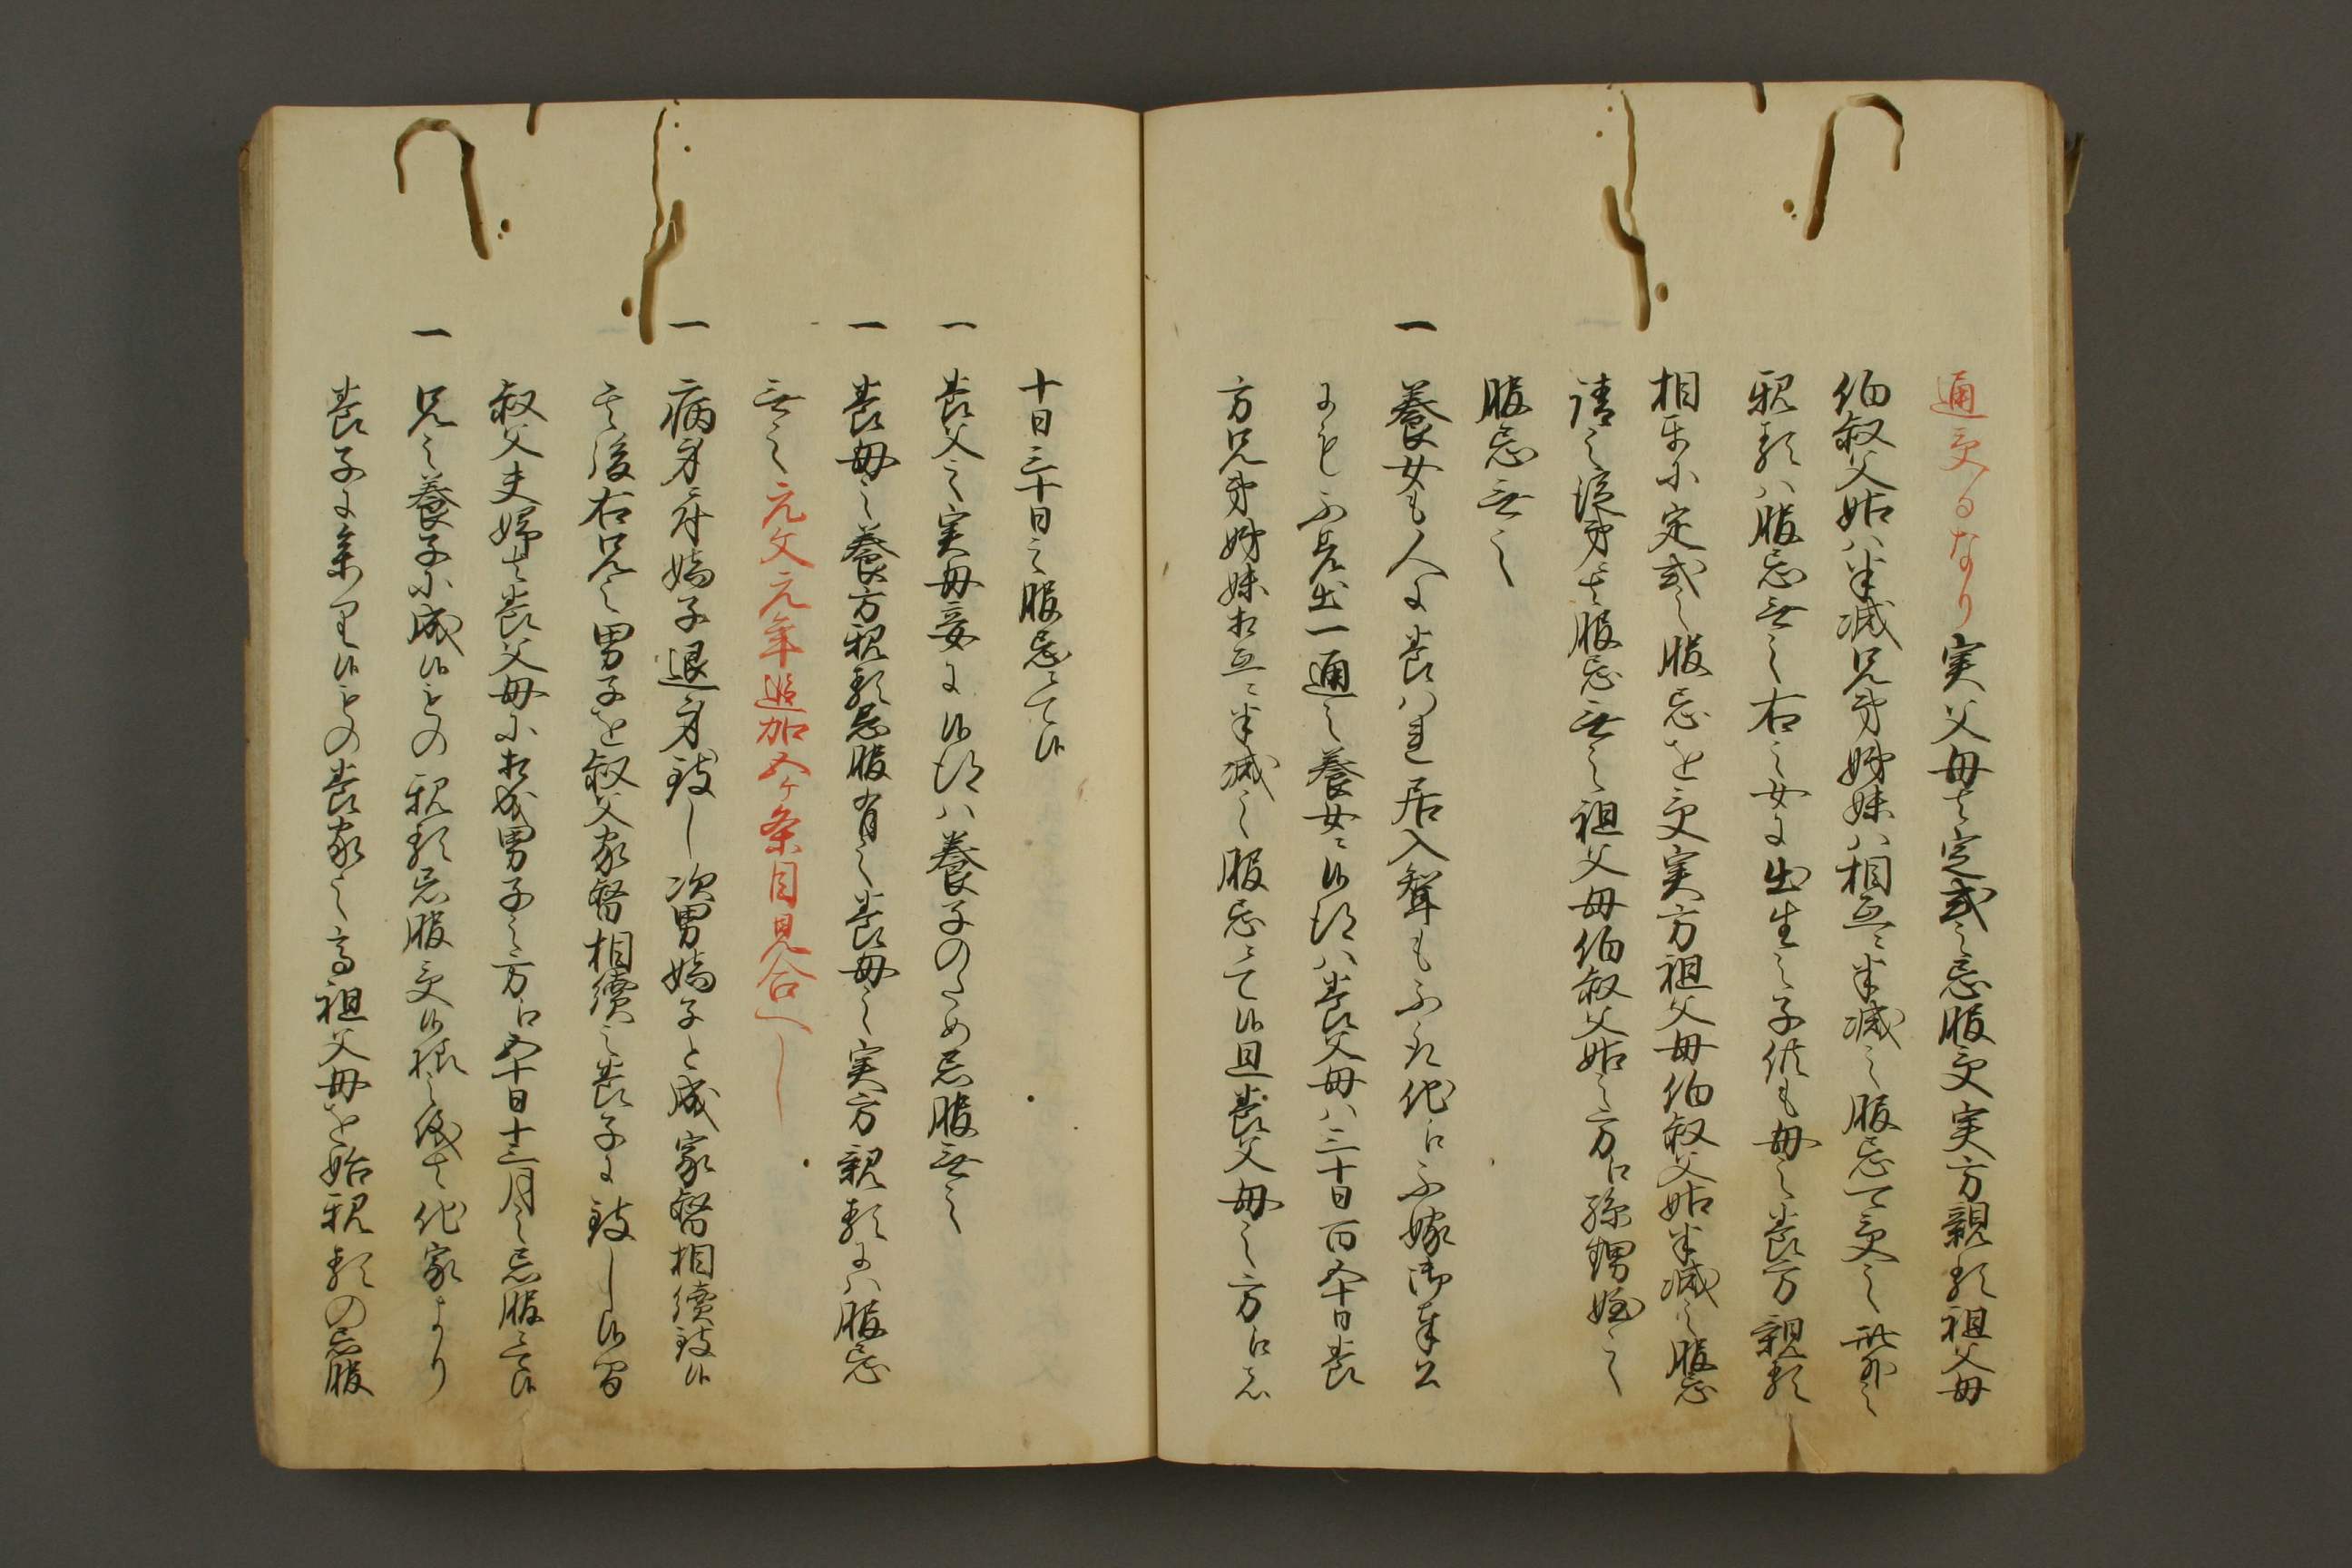 通受るなり実父母は定式之忌服受実方親類祖父母
伯叔父姑ハ半減兄弟姉妹ハ相互ニ半減之服忌可受之此外之
親類ハ服忌無之右之女に出生之子供も母之養方親類
相互小定式之服忌を受実方祖父母伯叔父姑半減之服忌
請之従弟は服忌無之祖父母伯叔父姑之方江孫甥姪之
服忌無之
一 養女も人に養ハれ居入聟もふ取他江不嫁御奉公
にもふ差出一通之養女ニ候得ハ養父母ハ三十日百五十日養
方兄弟姉妹相互ニ半減之服忌ニて候且養父母之方江も
十日三十日之服忌ニて候
一 養父之実母妾に候得ハ養子のため忌服無之
一 養母之養方親類忌服有之養母之実方親類にハ服忌
無之元文元年追加五ケ条目見合へし
一 病身ニ付嫡子退身致し次男嫡子と成家督相続致候
其後右兄之男子を叔父家督相續之養子に致し候間
叔父夫婦は養父母小相成男子之方江五十日十三月之忌服ニて候
一 兄之養子小成候もの親類忌服受候様之儀は他家より
養子に参り候もの養家之高祖父母を始親類の忌服